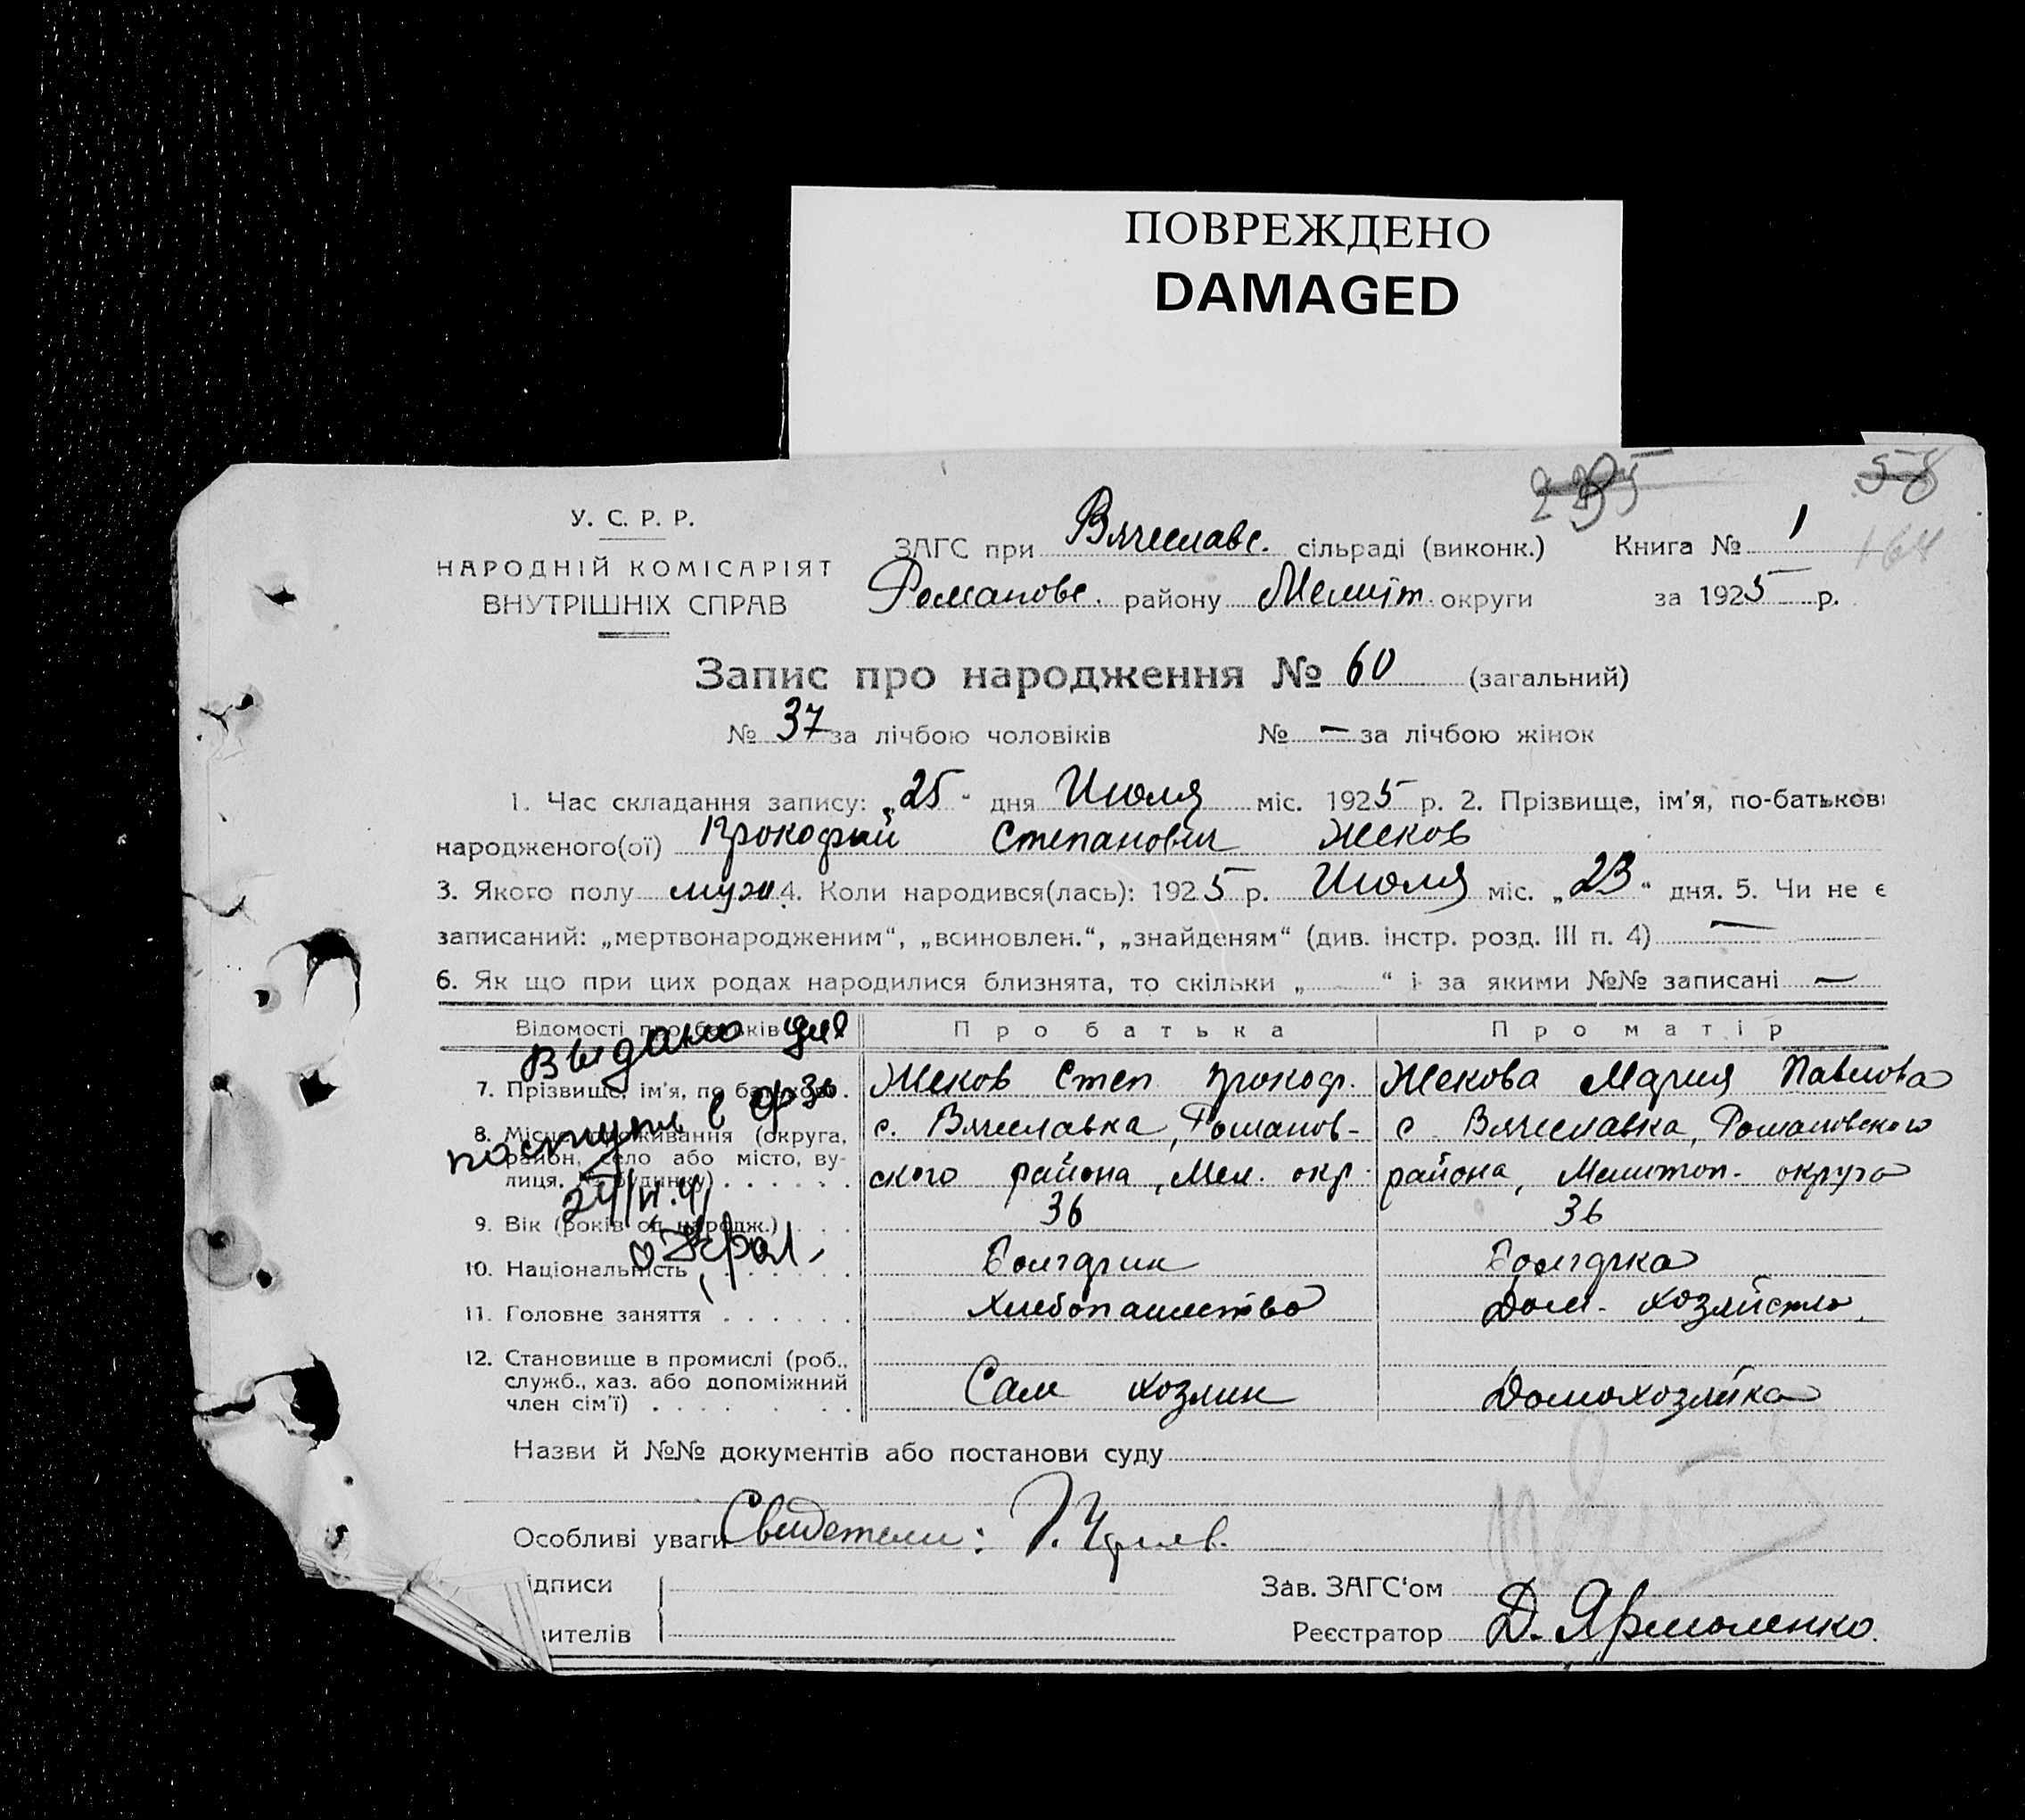 ПОВРЕЖДЕНО
DAMAGED
58
164
У. С. Р. Р.
НАРОДНІЙ КОМІСАРІЯТ
ВНУТРІШНІХ СПРАВ
ЗАГС при Вячеславс. сільраді (виконк.) Книга № 1
Романовс. району Меліт. округи за 1925 р.
Запис про народження № 60 (загальний)
№ 37 за лічбою чоловіків № — за лічбою жінок
1. Час складання запису: „25“ дня Июля міс. 1925 р. 2. Прізвище, ім'я, по-батькові
народженого(ої) Прокофий Степанович Жеков
3. Якого полу муж. 4. Коли народився(лась): 1925 р. Июля міс. „23“ дня. 5. Чи не є
записаний: „мертвонародженим“, „всиновлен.“, „знайденям“ (див. інстр. розд. III п. 4) —
6. Як що при цих родах народилися близнята, то скільки „ “ і за якими №№ записані —
Відомості про батьків Про батька Про матір
Выдано для
поступл в ФЗО
7. Прізвище, ім'я, по батькові. Жеков Степ Прокоф. Жекова Мария Павлова
8. Місце проживання (округа, с. Вячеславка, Романов- с Вячеславка, Романовского
район, село або місто, ву-
лиця, будинку) . . . . . . ского района, Мел. окр. района, Мелитоп. округа
9. Вік (років од народж.) . . . 36 36
10. Національність . . . . . . Болгарин Болгарка
11. Головне заняття . . . . . . Хлебопашество Дом. хозяйство.
12. Становище в промислі (роб.,
служб., хаз. або допоміжний Сам хозяин Домохозяйка
член сім'ї) . . . . . . .
Назви й №№ документів або постанови суду
Особливі уваги Свидетели:
ідписи Зав. ЗАГС'ом
вителів Реєстратор Д. Ярмоленко.